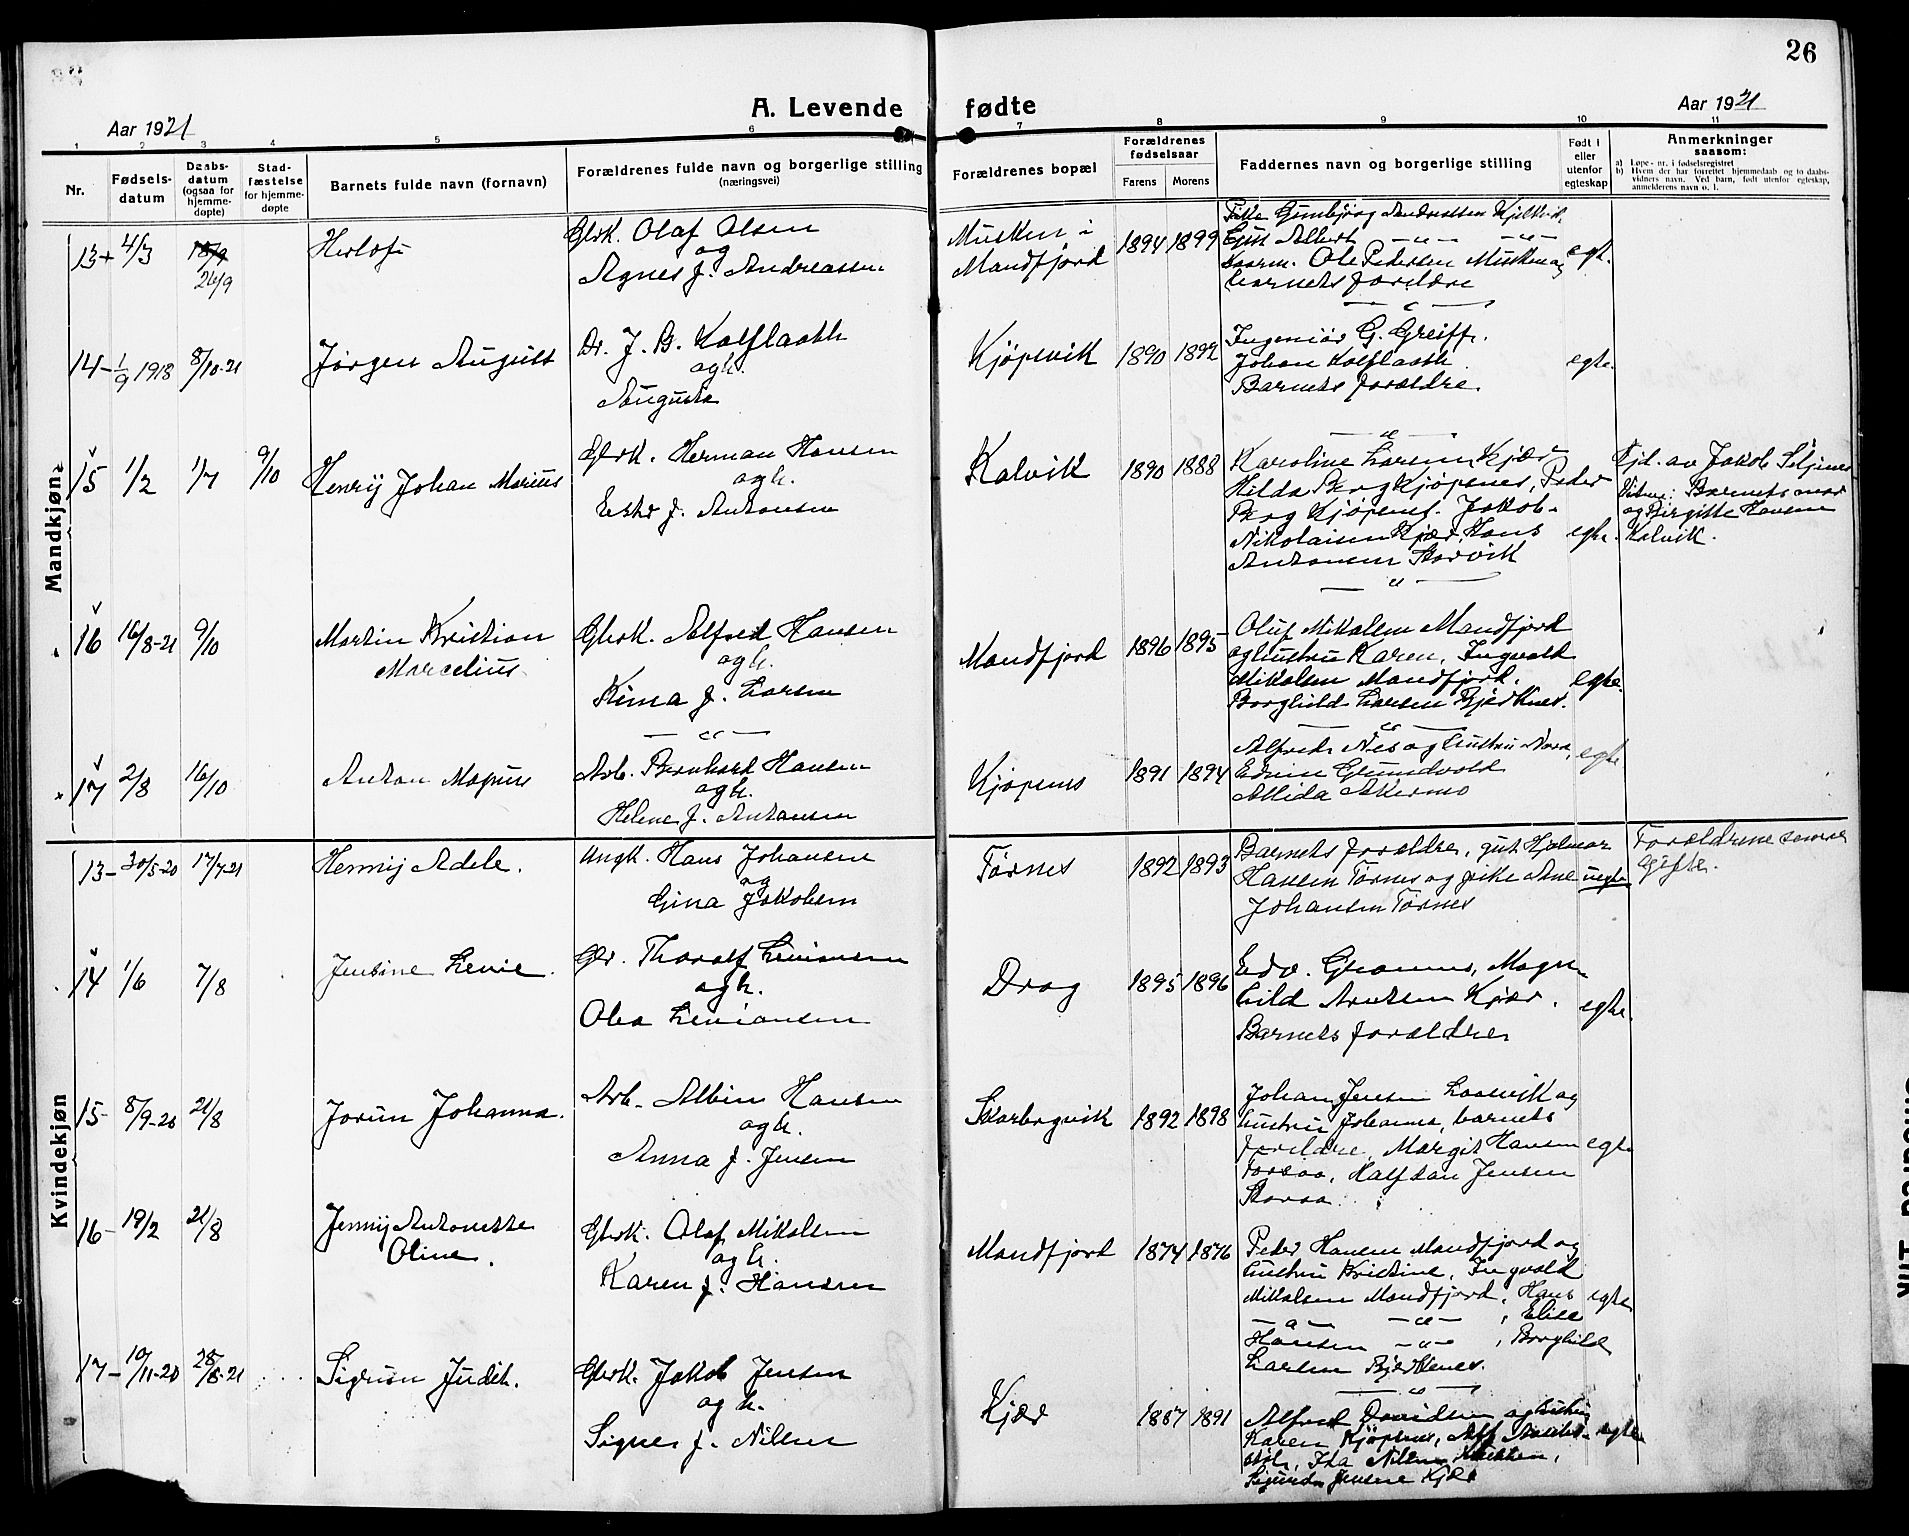 26
A. Levende fødte
Aar 1921
Aar 1921
1 2 3 4 5 6 7 8 9 10 11
Nr.
Fødsels-
datum
Daabs-
datum
(ogsaa for
hjemme-
døpte)
Stad-
fæstelse
for hjemme-
døpte
Barnets fulde navn (fornavn)
Forældrenes fulde navn og borgerlige stilling
(næringsvei)
Forældrenes bopæl
Forældrenes
fødselsaar
Farens Morens
Faddernes navn og borgerlige stilling
Født i
eller
utenfor
egteskap
Anmerkninger
saasom:
a) Løpe-nr. i fødselsregistret
b) Hvem der har forrettet hjemmedaab og to daabs-
vidners navn. Ved barn, født utenfor egteskap,
anmelderens navn o. l.
Mandkjøn
13 4/3 18/9
26/9
Herlof
Gbrk. Olaf Olsen
og
Agnes f. Andreassen
Musken i
Mandfjord
1894 1899
Pike Gunbjørg Andreassen Kjelkvik,
Gut Albert
Ole Pedersen Musken og
barnets forældre
egt.
14 1/9 1918 8/10-21
Jørgen August
Dr. J. B. Kalflaath
og h.
Augusta
Kjøpsvik
1890 1892
Ingeniør G. Greiff.
Johan Kalflaath
Barnets forældre.
egte.
15 1/2 1/7 9/10
Henry Johan Marius
Gbrk. Herman Hansen
og h.
Ester f. Antonsen
Kalvik
1890 1888
Karoline Larsen Kjær
Hilda Berg Kjøpsnes, Peder
Berg Kjøpsnes. Jakob
Nikolaisen Kjær, Hans
Antonsen Storvik
egte.
Hjd. av Jakob Siljenes
Vitne: Barnets mor
og Birgitte Hansen
Kalvik.
16 16/8-21 9/10
Martin Kristian
Marcelius
Gbrk. Alfred Hansen
og h.
Kima f. Larsen
Mandfjord
1896 1895
Oluf Mikalsen Mandfjord
og hustru Karen, Ingvald
Mikalsen Mandfjord.
Borghild Larsen Bjerknes.
egte.
17 2/8 16/10
Anton Magnus
Arb. Bernhard Hansen
og h.
Helene f. Antonsen
Kjøpsnes
1891 1894
Alfred Nes og hustru Nora,
Edvin Grundvold
Alida Akermo
egte
Kvindekjøn
13 30/5-20 17/7-21
Henny Adele.
Ungk. Hans Johansen
og
Gina Jakobsen
Tørnes
1892 1893
Barnets forældre, gut Hjalmar
Hansen Tørnes og pike Ane
Johansen Tørnes
uegte
Forældrene senere
gifte.
14 1/6 7/8
Jensine Levie.
Gbr. Thoralf Leviansen
og h.
Olea Leviansen
Drag
1895 1896
Edv. Grannes, Magn-
hild Arntsen Kjær.
Barnets forældre
egte.
15 8/9-20 21/8
Jorun Johanna.
Arb. Albin Hansen
og h.
Anna f. Jensen
Skarbergvik
1892 1898
Johan Jensen Laasvik og
hustru Johanna, barnets
forældre, Margit Hansen
Torsaa, Halfdan Jensen
Storaa.
egte
16 19/2 21/8
Jenny Antonette
Oline.
Gbrk. Olaf Mikalsen
og h.
Karen f. Hansen
Mandfjord
1874 1876
Peder Hansen Mandfjord og
hustru Kristine, Ingvald
Mikalsen Mandfjord, Hans
Elise
Hansen, Borghild
Larsen Bjerknes.
egte
17 10/11-20 28/8-21
Sigrun Judit.
Gbrk. Jakob Jensen
og h.
Signe f. Nilsen
Kjær
1887 1891
Alfred Davidsen og hustru
Karen Kjøpsnes,
Ida Nilsen Musken,
Sigurd Jensen Kjær
egte